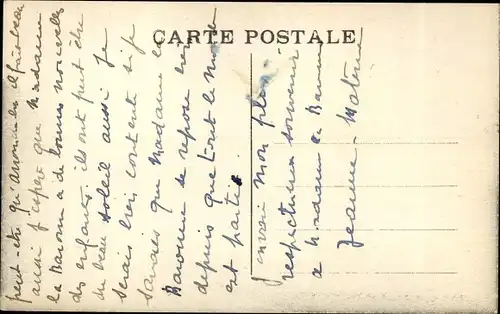 CARTE POSTALE
peut-être qu'à il fait beau
aussi j'espère que Madame
la Baronne a de bonnes nouvelles
des enfants, ils ont peut être
du beau soleil aussi je
serais bien contente si je
savais que Madame la
Baronne se repose
depuis que tout le monde
est partie.
J'envoie mon plus
respectueux souvenir
a Madame la Baronne
Jeanne